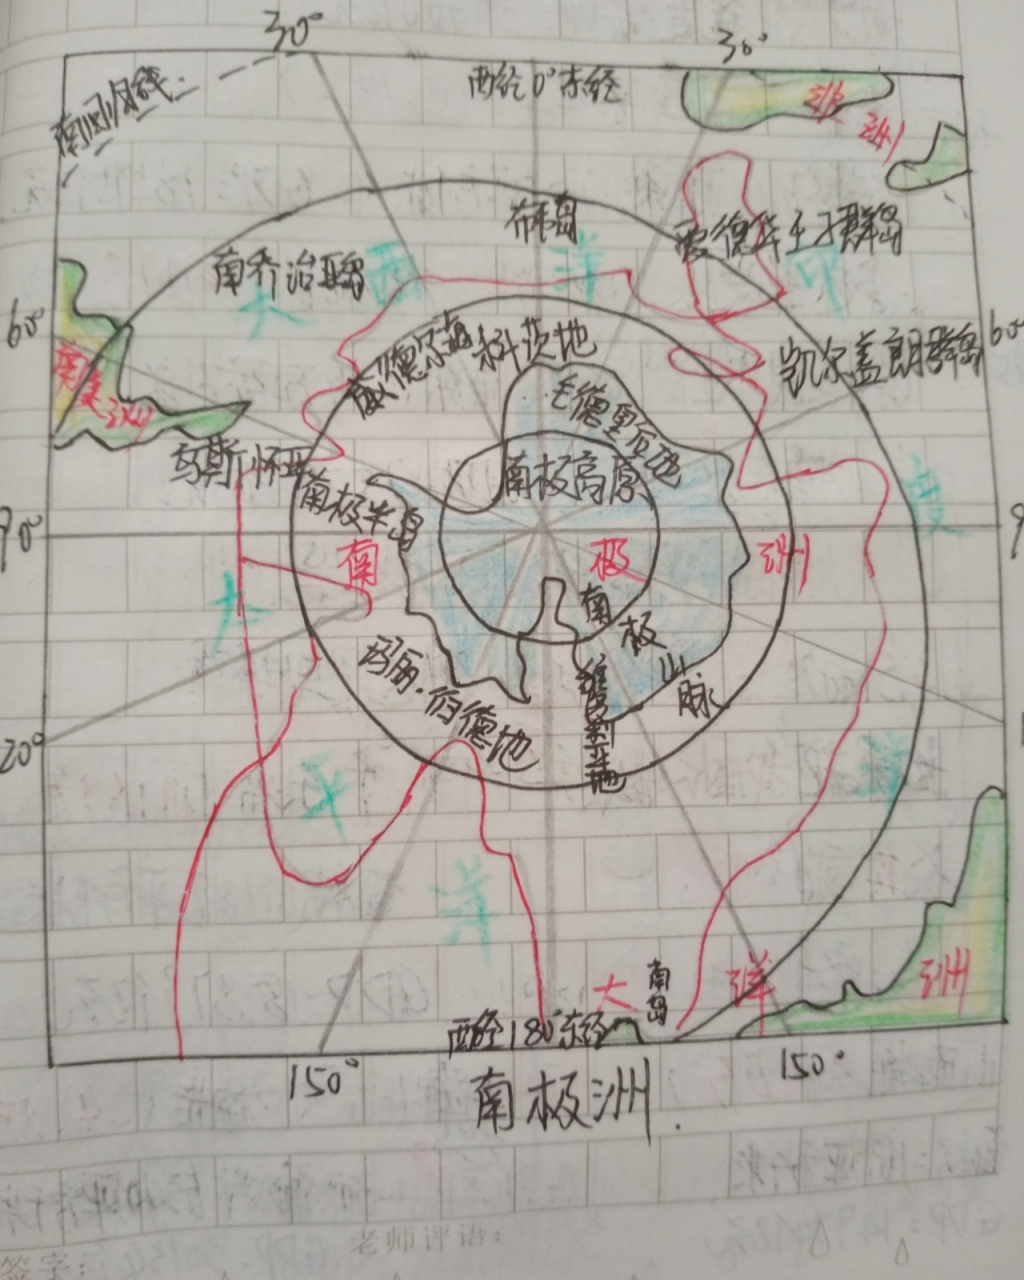 30°
30°
南回归线
西经0°东经
非
洲
布韦岛
爱德华王子群岛
南乔治亚岛
大
西
洋
印
60°
60°
威德尔海
科茨地
凯尔盖朗群岛
美
洲
毛德皇后地
乌斯怀亚
南极高原
南极半岛
度
90°
9
南
极
洲
大
南
极
山
脉
玛丽·伯德地
维多利亚地
20°
1
平
洋
洋
洋
大
洋
洲
南岛
西经180°东经
150°
150°
南极洲.
老师评语:
签字: